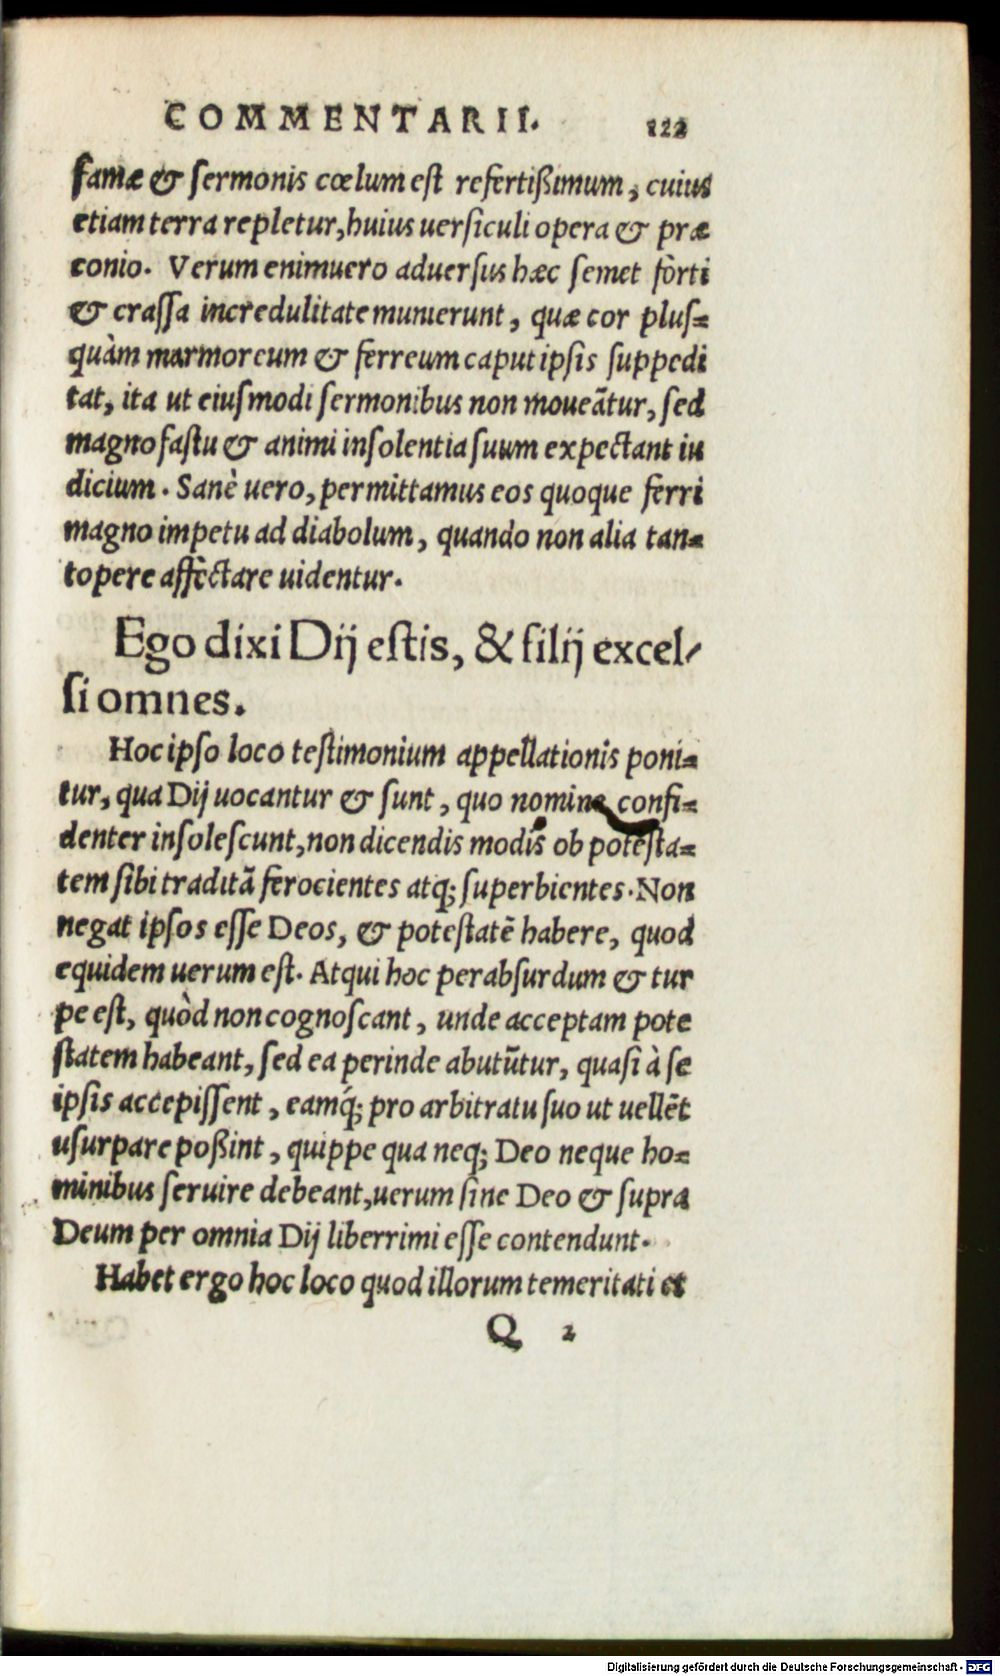 COMMENTARII. 122
famæ & sermonis cœlum est refertißimum, cuius
etiam terra repletur, huius uersiculi opera & præ
conio. Verum enimuero aduersus hæc semet forti
& crassa incredulitate munierunt, quæ cor plus=
quàm marmoreum & ferreum caput ipsis suppedi
tat, ita ut eiusmodi sermonibus non moueãtur, sed
magno fastu & animi insolentia suum expectant iu
dicium. Sanè uero, permittamus eos quoque ferri
magno impetu ad diabolum, quando non alia tan=
topere affectare uidentur.
Ego dixi Dij estis, & filij excel-
si omnes.
Hoc ipso loco testimonium appellationis poni=
tur, qua Dij uocantur & sunt, quo nomine confi=
denter insolescunt, non dicendis modis ob potesta=
tem sibi traditã ferocientes atq; superbientes. Non
negat ipsos esse Deos, & potestatẽ habere, quod
equidem uerum est. Atqui hoc perabsurdum & tur
pe est, quòd non cognoscant, unde acceptam pote
statem habeant, sed ea perinde abutũtur, quasi à se
ipsis accepissent, eamq́; pro arbitratu suo ut uellẽt
usurpare poßint, quippe qua neq; Deo neque ho=
minibus seruire debeant, uerum sine Deo & supra
Deum per omnia Dij liberrimi esse contendunt.
Habet ergo hoc loco quod illorum temeritati et
Q 2
Digitalisierung gefördert durch die Deutsche Forschungsgemeinschaft - DFG